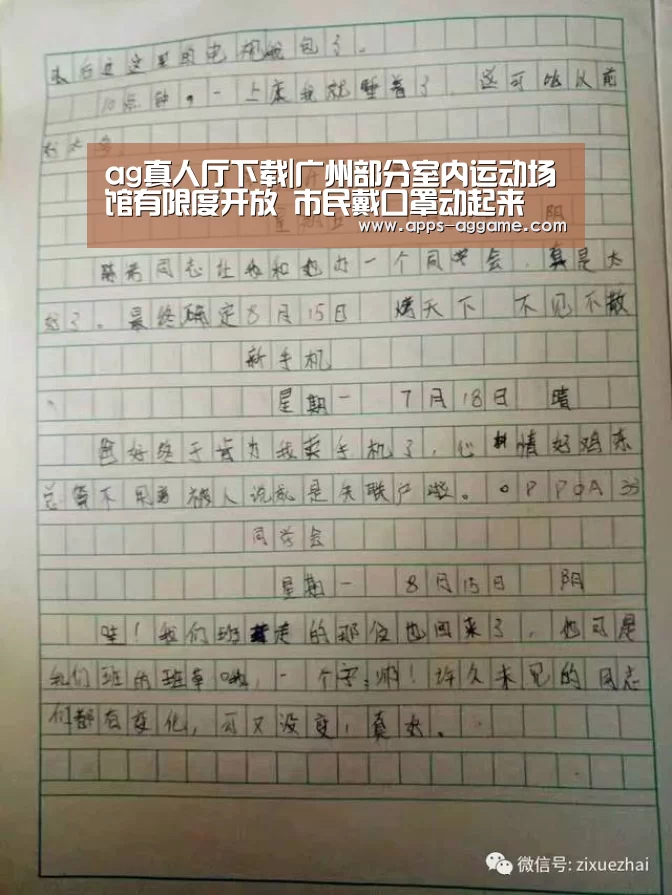 10点钟,一上床我就睡着了,这可比以前
ag真人厅下载|广州部分室内运动场
馆有限度开放 市民戴口罩动起来
www.apps-aggame.com
阴
同志让我和她办一个同学会,真是太
好了。最终确定8月15日 天下 不见不散
新手机
星期一 7月18日 晴
爸妈终于肯为我买手机了,心情好鸡冻
总算不用再被人说我是失联户啦。OPPOA33
同学会
星期一 8月15日 阴
哇!我们班走的那位也回来了,他可是
我们班的班草哦,一个字:帅!许久未见的同志
们都有变化,可又没变,真好。
微信号: zixuezhai